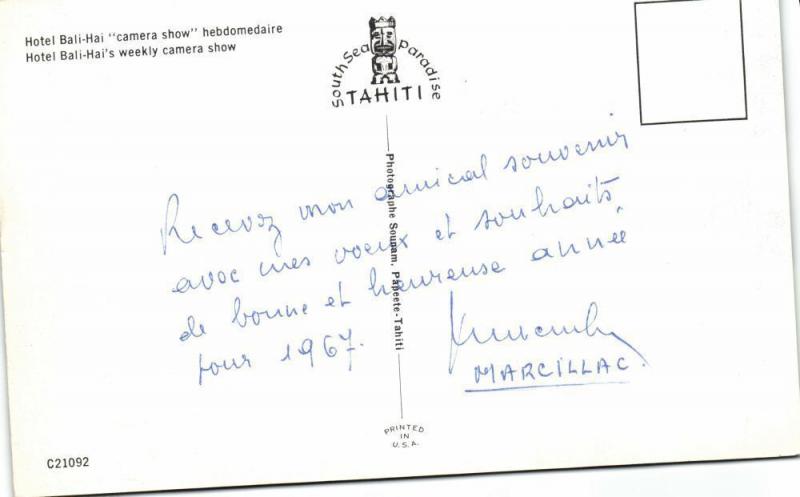 Hotel Bali-Hai "camera show" hebdomedaire
Hotel Bali-Hai's weekly camera show
South Sea Paradise
TAHITI
Photographe Sounam, Papeete-Tahiti
Recevez mon amical souvenir
avec mes voeux et souhaits
de bonne et heureuse année
pour 1967.
MARCILLAC.
PRINTED
IN
U.S.A.
C21092